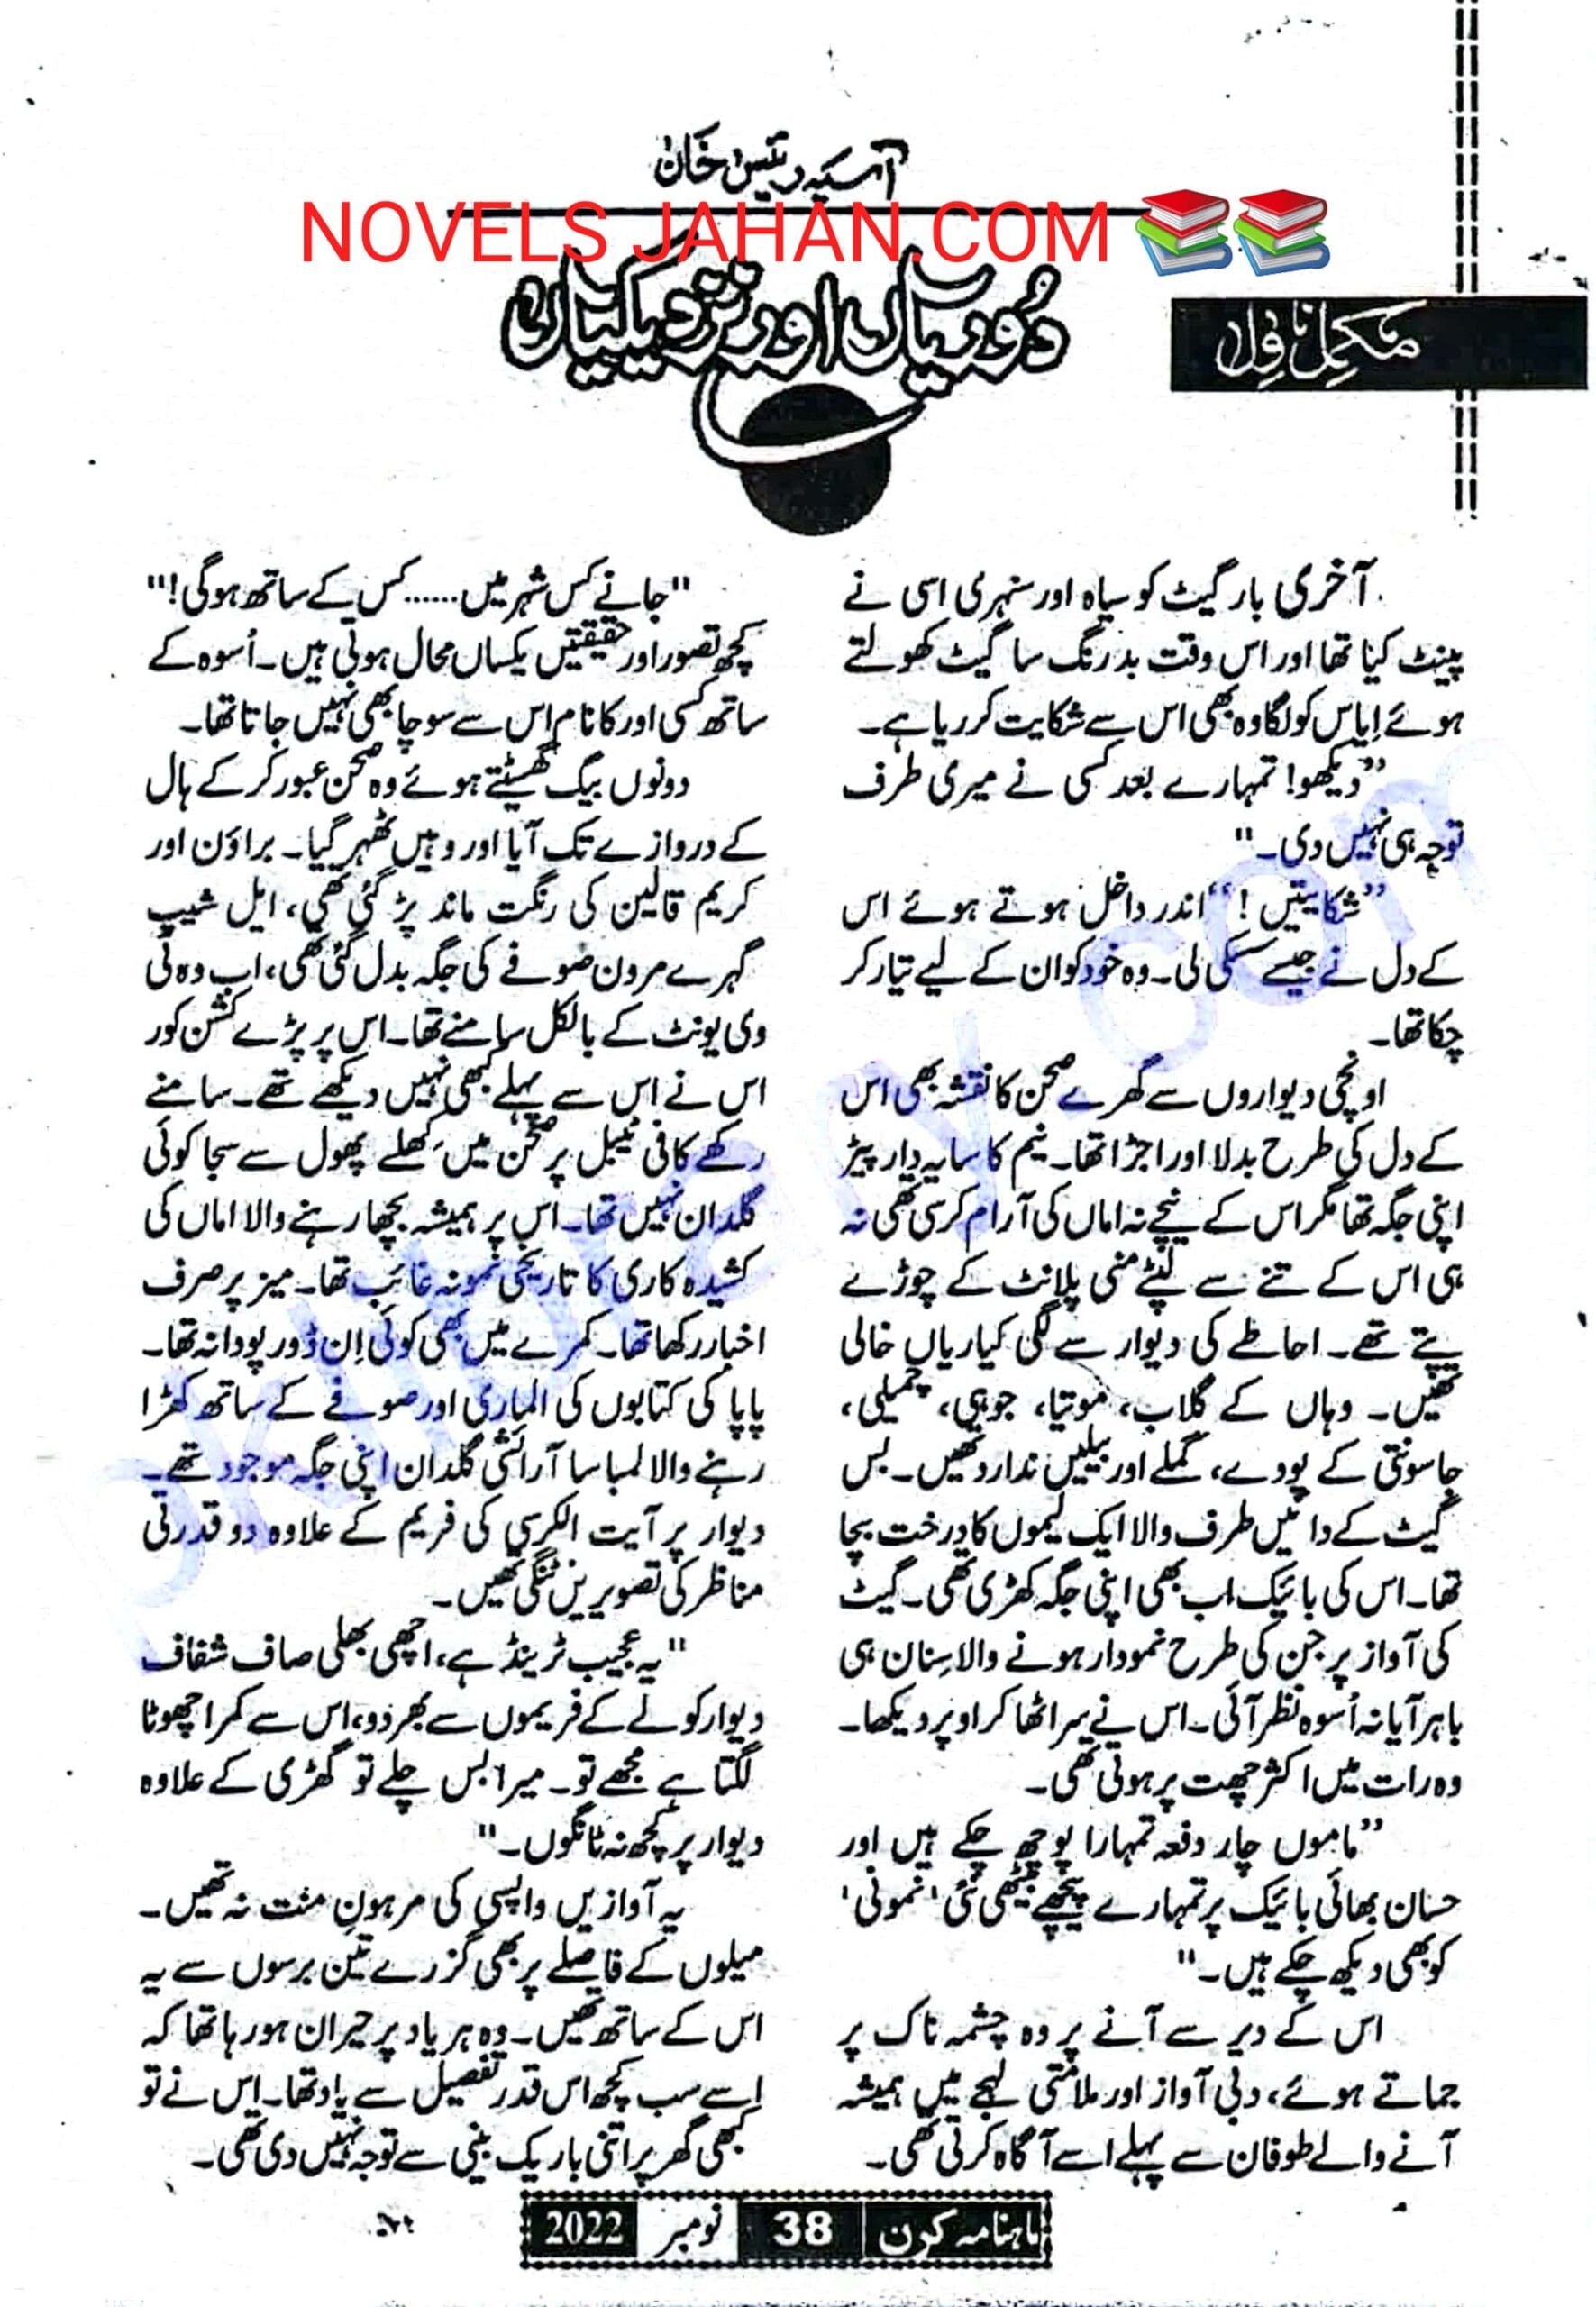 آسیہ رئیس خان
NOVELS JAHAN.COM
دُوریاں اور نزدیکیاں
مکمل ناول
آخری بار گیٹ کو سیاہ اور سنہری اسی نے
پینٹ کیا تھا اور اس وقت بدرنگ سا گیٹ کھولتے
ہوئے اِیاس کو لگا وہ بھی اس سے شکایت کر رہا ہے۔
”دیکھو! تمہارے بعد کسی نے میری طرف
توجہ ہی نہیں دی۔"
”شکایتیں!“ اندر داخل ہوتے ہوئے اس
کے دل نے جیسے سسکی لی۔ وہ خود کو ان کے لیے تیار کر
چکا تھا۔
اونچی دیواروں سے گھرے صحن کا نقشہ بھی اس
کے دل کی طرح بدلا اور اجڑا تھا۔ نیم کا سایہ دار پیڑ
اپنی جگہ تھا مگر اس کے نیچے نہ اماں کی آرام کرسی تھی نہ
ہی اس کے تنے سے لپٹے منی پلانٹ کے چوڑے
پتے تھے۔ احاطے کی دیوار سے لگی کیاریاں خالی
تھیں۔ وہاں کے گلاب، موتیا، جوہی، چمیلی،
جاسونتی کے پودے، گملے اور بیلیں ندارد تھیں۔ بس
گیٹ کے دائیں طرف والا ایک لیموں کا درخت بچا
تھا۔ اس کی بائیک اب بھی اپنی جگہ کھڑی تھی۔ گیٹ
کی آواز پر جن کی طرح نمودار ہونے والا سِنان ہی
باہر آیا نہ اُسوہ نظر آئی۔ اس نے سر اٹھا کر اوپر دیکھا۔
وہ رات میں اکثر چھت پر ہوتی تھی۔
”ماموں چار دفعہ تمہارا پوچھ چکے ہیں اور
حسان بھائی بائیک پر تمہارے پیچھے بیٹھی نئی 'نمونی'
کو بھی دیکھ چکے ہیں۔"
اس کے دیر سے آنے پر وہ چشمہ ناک پر
جماتے ہوئے، دبی آواز اور ملامتی لہجے میں ہمیشہ
آنے والے طوفان سے پہلے اسے آگاہ کرتی تھی۔
"جانے کس شہر میں...... کس کے ساتھ ہوگی!"
کچھ تصور اور حقیقتیں یکساں محال ہوتی ہیں۔ اُسوہ کے
ساتھ کسی اور کا نام اس سے سوچا بھی نہیں جاتا تھا۔
دونوں بیگ گھسیٹتے ہوئے وہ صحن عبور کر کے ہال
کے دروازے تک آیا اور وہیں ٹھہر گیا۔ براؤن اور
کریم قالین کی رنگت ماند پڑ گئی تھی، ایل شیپ
گہرے مرون صوفے کی جگہ بدل گئی تھی، اب وہ ٹی
وی یونٹ کے بالکل سامنے تھا۔ اس پر پڑے کشن کور
اس نے اس سے پہلے کبھی نہیں دیکھے تھے۔ سامنے
رکھے کافی ٹیبل پر صحن میں کھلے پھول سے سجا کوئی
گلدان نہیں تھا۔ اس پر ہمیشہ بچھا رہنے والا اماں کی
کشیدہ کاری کا تاریخی نمونہ غائب تھا۔ میز پر صرف
اخبار رکھا تھا۔ کمرے میں بھی کوئی اِن ڈور پودا نہ تھا۔
پاپا کی کتابوں کی الماری اور صوفے کے ساتھ کھڑا
رہنے والا لمبا سا آرائشی گلدان اپنی جگہ موجود تھے۔
دیوار پر آیت الکرسی کی فریم کے علاوہ دو قدرتی
مناظر کی تصویریں ٹنگی تھیں۔
"یہ عجیب ٹرینڈ ہے، اچھی بھلی صاف شفاف
دیوار کو لے کے فریموں سے بھر دو، اس سے کمرا چھوٹا
لگتا ہے مجھے تو۔ میرا بس چلے تو گھڑی کے علاوہ
دیوار پر کچھ نہ ٹانگوں۔"
یہ آوازیں واپسی کی مرہونِ منت نہ تھیں۔
میلوں کے فاصلے پر بھی گزرے تین برسوں سے یہ
اس کے ساتھ تھیں۔ وہ ہر یاد پر حیران ہو رہا تھا کہ
اسے سب کچھ اس قدر تفصیل سے یاد تھا۔ اس نے تو
کبھی گھر پر اتنی باریک بینی سے توجہ نہیں دی تھی۔
ماہنامہ کرن 38 نومبر 2022